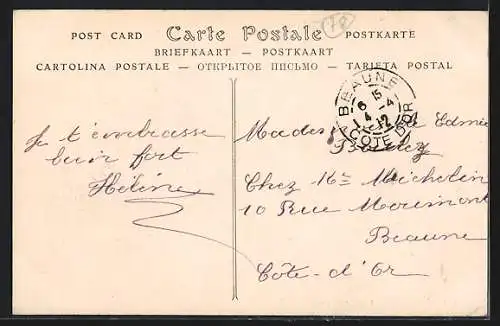 POST CARD Carte Postale POSTKARTE
BRIEFKAART — POSTKAART
CARTOLINA POSTALE — ОТКРЫТОЕ ПИСЬМО — TARJETA POSTAL
BEAUNE
6 15
4 -4
12
COTE D'OR
Je t'embrasse
bien fort
Hélène
Edmée
Chez Mr Michelin
10 Rue
Beaune
Côte-d'Or